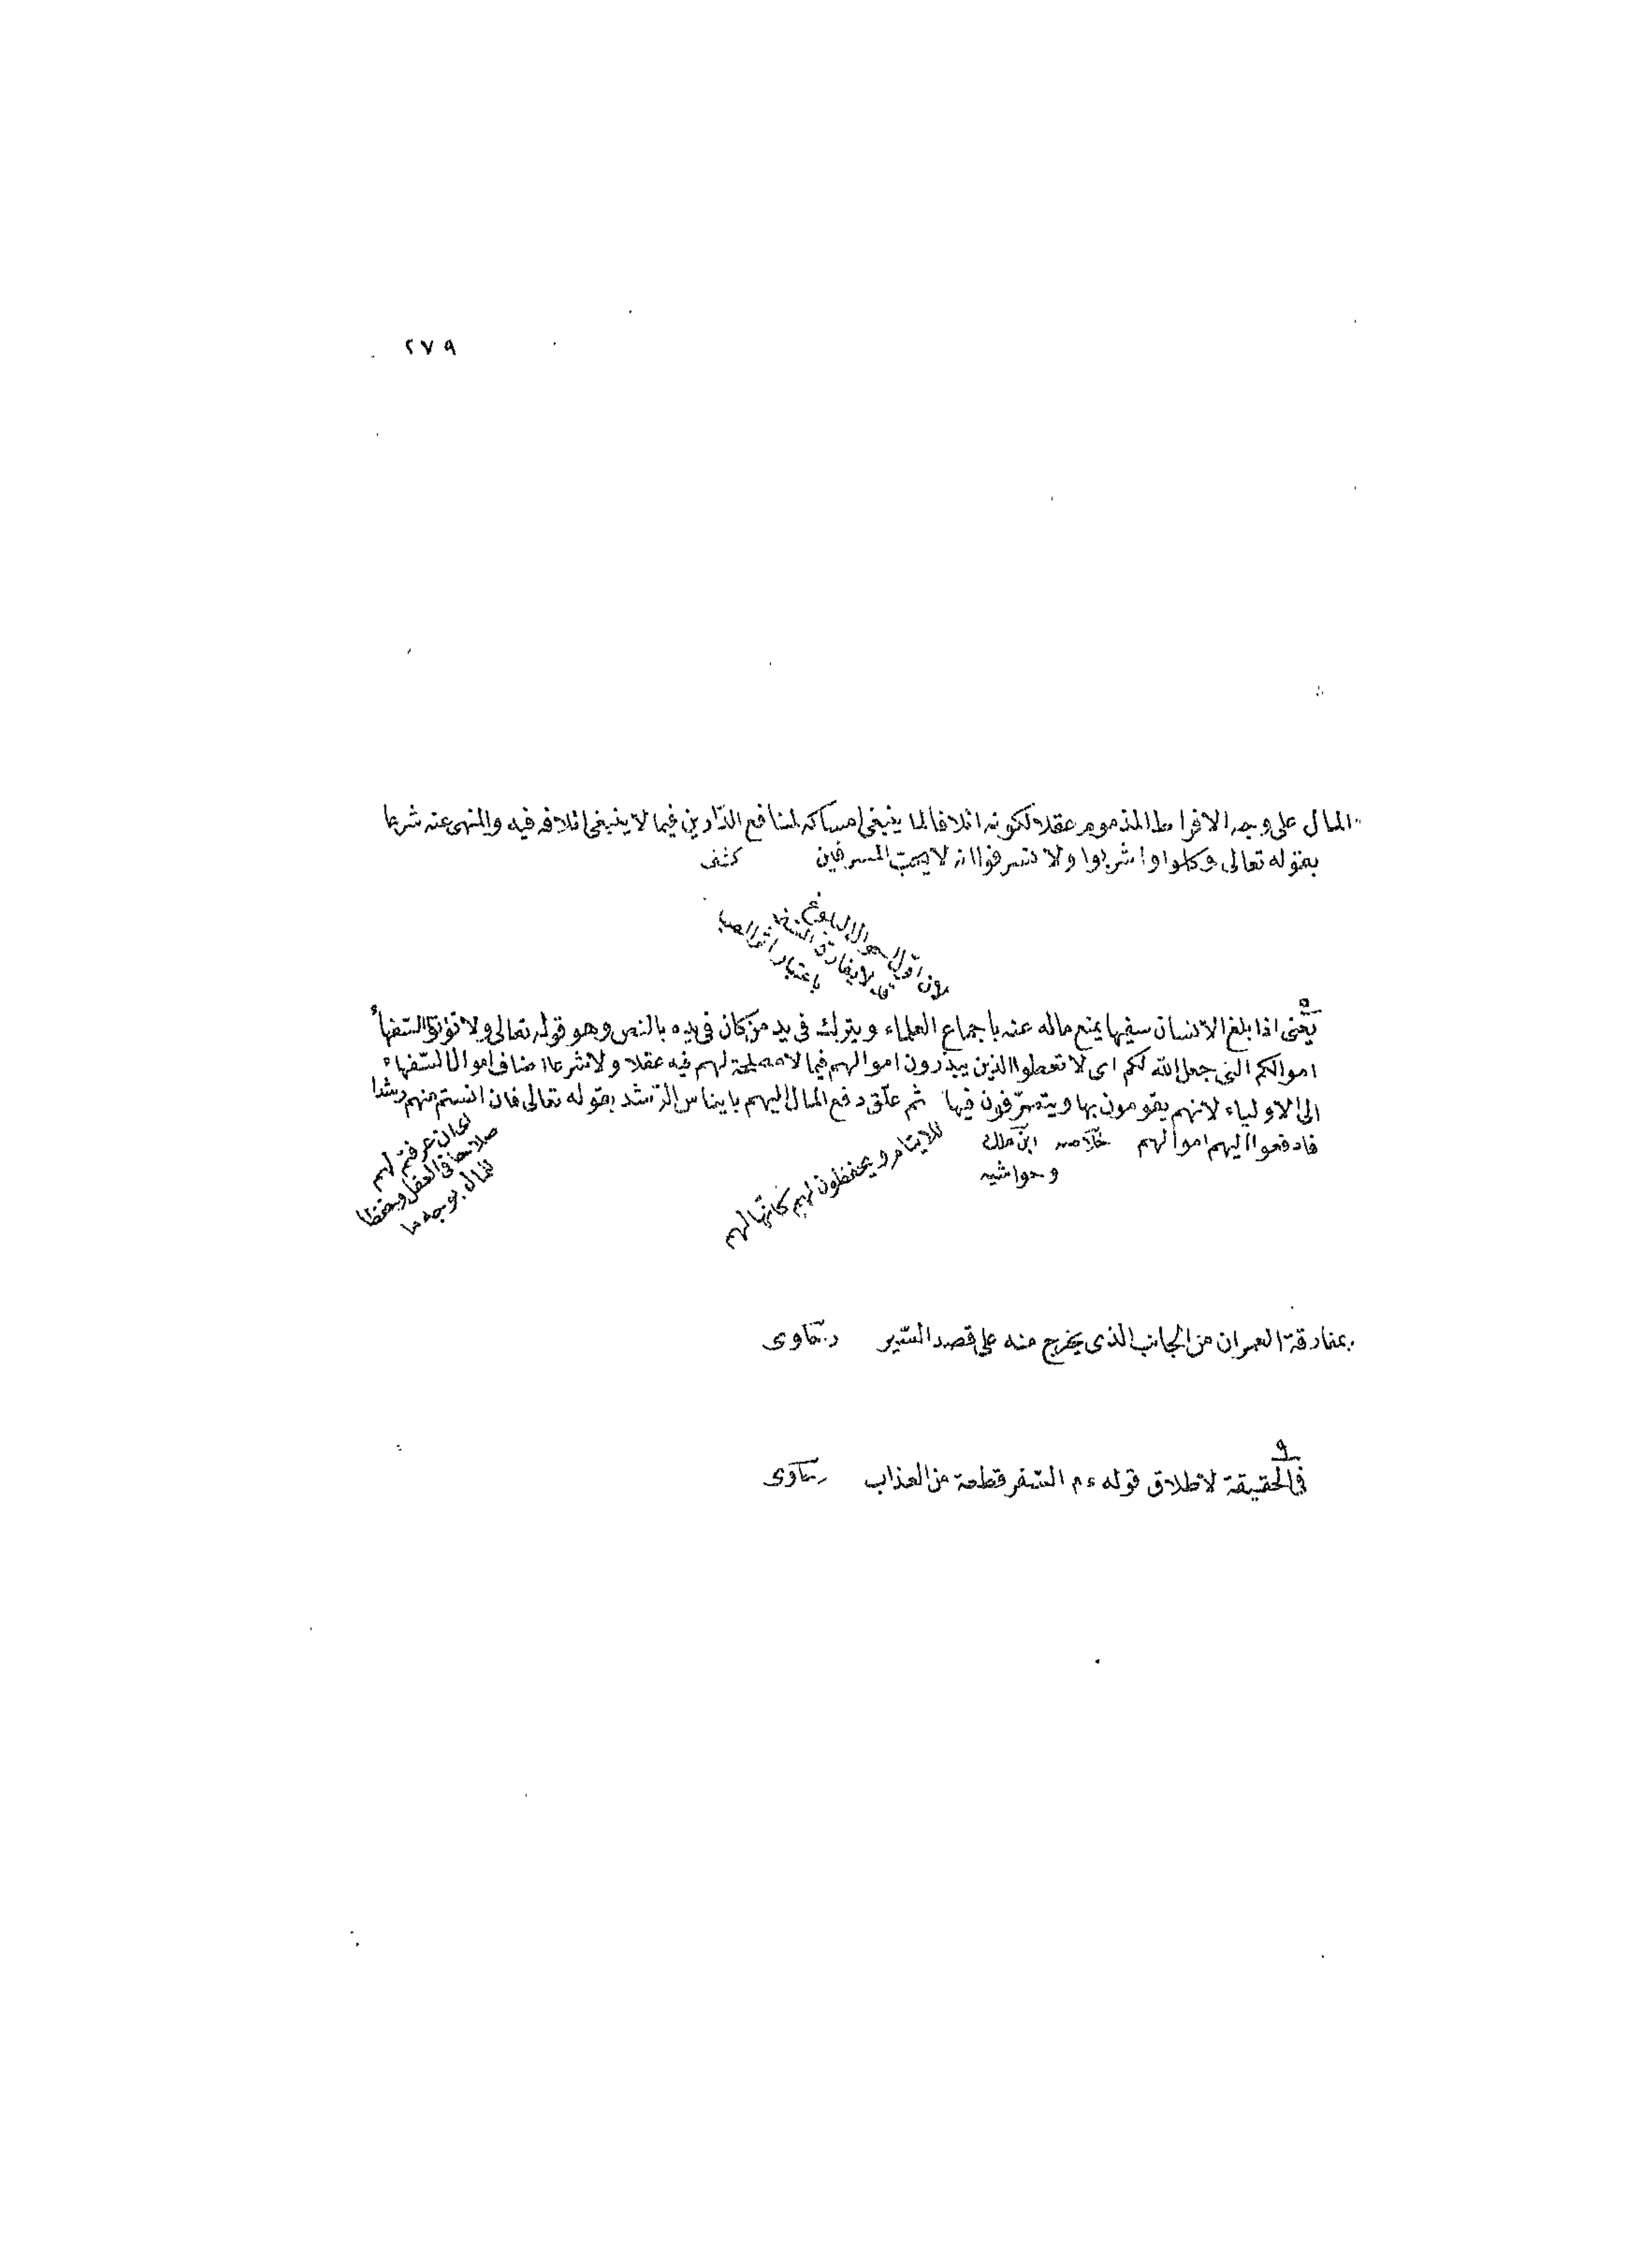 ٢٧٩
المال على وجه الافراط المذموم عقلا لكونه اتلافا لما ينبغى امساكه لمنافع الدّارين فيما لا ينبغى اتلافه فيه والمنهى عنه شرعا
بقوله تعالى وكلوا واشربوا ولا تسرفوا انه لا يحبّ المسرفين كشف
لان اوّل احوال البلوغ
لا يفارق السفه
باعتبار اثر الصبا
يعنى اذا بلغ الانسان سفيها يمنع ماله عنه باجماع العلماء ويترك فى يد من كان فى يده بالنص وهو قوله تعالى ولا تؤتوا السّفهاء
اموالكم التى جعل الله لكم اى لا تعطوا الذين يبذرون اموالهم فيما لا مصلحة لهم فيه عقلا ولا شرعا اضاف اموال السّفهاء
الى الاولياء لانهم يقومون بها ويتصرّفون فيها ثم علّق دفع المال اليهم بايناس الرّشد بقوله تعالى فان انستم منهم رشدا
فادفعوا اليهم اموالهم خلاصه ابن ملك
وحواشيه
للايتام ويحفظون لهم كانّها لهم
اى ان عرفتم لهم
صلاحا فى العقل وحفظا
للمال بوجه ما
بمفارقة العمران من الجانب الذى يخرج منه على قصد السّير رهاوى
٩
فى الحقيقة لاطلاق قوله ءم السّفر قطعة من العذاب رهاوى